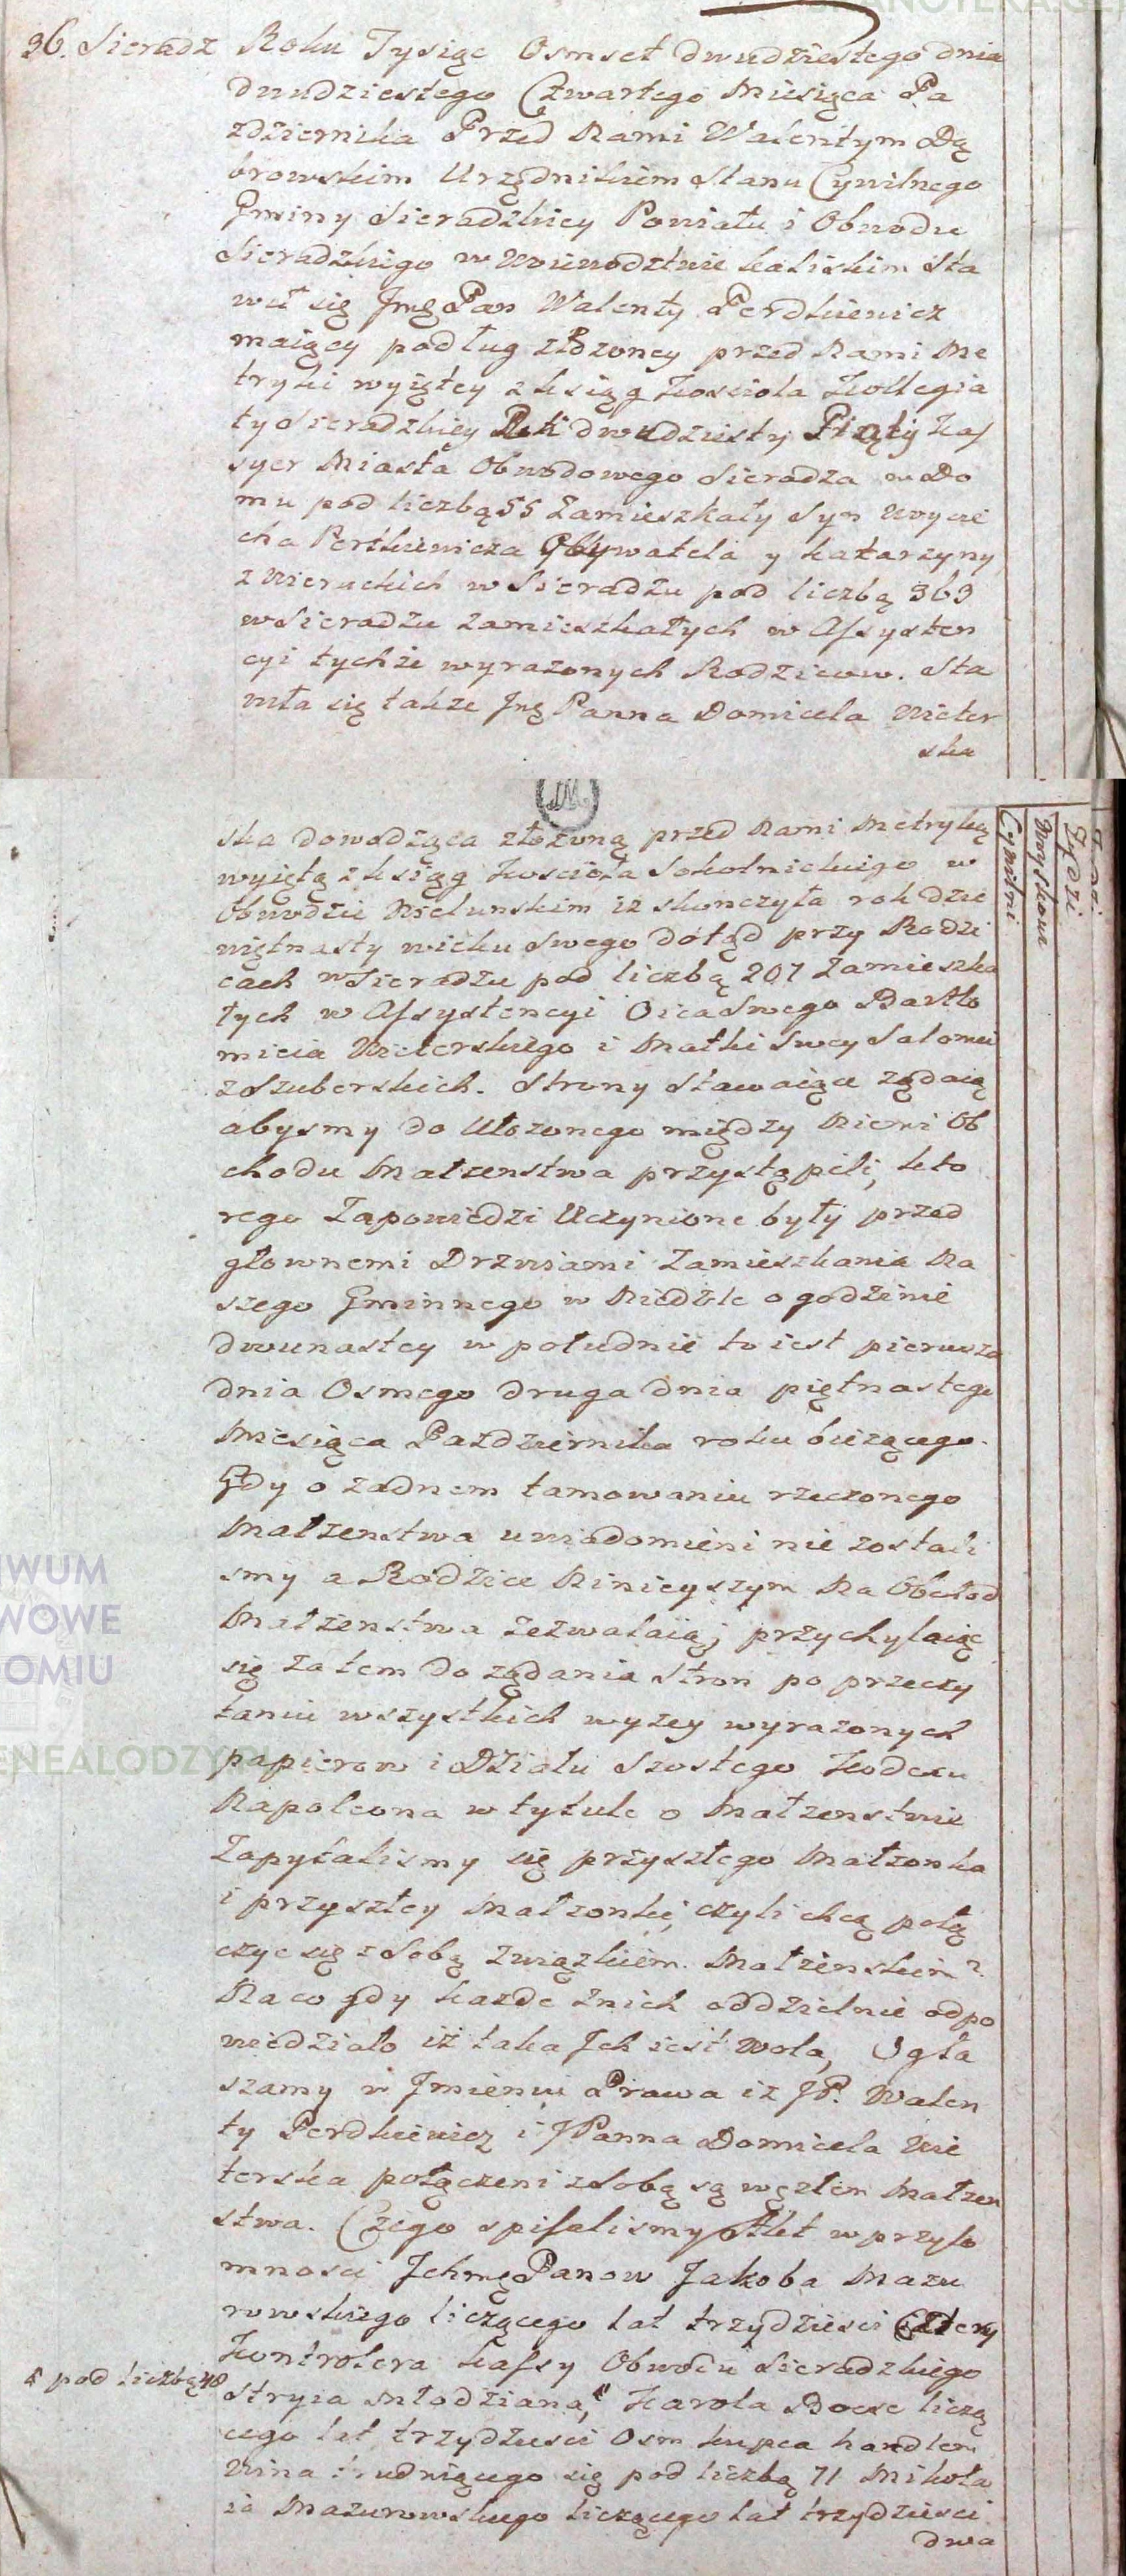 36. Sieradz Roku Tysiąc Osmset dwudziestego dnia
dwudziestego Czwartego Miesiąca Pa
zdziernika Przed Nami Walentym Dą
browskim Urzędnikiem Stanu Cywilnego
Gminy Sieradzkiey Powiatu i Obwodu
Sieradzkiego w Woiewodztwie Kaliskim Sta
wił się Jmć Pan Walenty Perdkiewicz
maiący podług złożoney przed Nami Me
tryki wyiętey z ksiąg Kościoła Kollegia
ty Sieradzkiey Rok dwudziesty Piąty Kas
syer Miasta Obwodowego Sieradza w Do
mu pod liczbą 55 Zamieszkały Syn Woycie
cha Pertkiewicza Obywatela y Katarzyny
z Nieruckich w Sieradzu pod liczbą 363
w Sieradzu zamieszkałych w Assysten
cyi tychże wyrazonych Rodzicow. Sta
wiła się także Jmć Panna Domicela Wieter
ska
ska dowodząca złożoną przed Nami Metryką
wyiętą z ksiąg Kościoła Sokolnickiego w
Obwodzie Wielunskim iż skonczyła rok dzie
więtnasty wieku Swego dotąd przy Rodzi
cach w Sieradzu pod liczbą 207 Zamieszka
łych w Assystencyi Oica Swego Bartło
mieia Wieterskiego i Matki Swey Salomei
z Szuberskich. Strony Stawaiące żądaią
abysmy do Ułożonego między Niemi Ob
chodu Małżenstwa przystąpili, kto
rego Zapowiedzi Uczynione były przed
głownemi Drzwiami Zamieszkania Na
szego Gminnego w Niedziele o godzinie
dwunastey w południe to iest pierwsza
dnia Osmego druga dnia piętnastego
Miesiąca Pazdziernika roku bieżącego.
Gdy o żadnem tamowaniu rzeczonego
Małżenstwa uwiadomieni nie zostali
smy a Rodzice Ninieyszym Na Obchod
Małżenstwa Zezwalaią; przychylaiąc
się zatem do żądania Stron po przeczy
taniu wszystkich wyzey wyrazonych
papierow i Działu Szostego Kodexu
Napoleona w tytule o Małżenstwie
Zapytalismy się przyszłego Małżonka
i przyszłey Małżonki, czyli chcą połą
czyc się z Sobą Związkiem Małżenskim?
Na co gdy każde z nich oddzielnie odpo
wiedziało iż taka Jch iest Wola, Ogła
szamy w Jmieniu Prawa iż JP. Walen
ty Perdkiewicz i JPanna Domicela Wie
terska połączeni z Sobą są węzłem Małżen
stwa. Czego spisalismy Akt w przyto
mnosci Jchmć Panow Jakoba Mazu
rowskiego liczącego lat trzydziesci Cztery
Kontrolera Kassy Obwodu Sieradzkiego
# pod liczbą 48
Stryia Młodziana, # Karola Boese liczą
cego lat trzydziesci Osm kupca handlem
Wina trudniącego się pod liczbą 71 Mikoła
ia Mazurowskiego liczącego lat trzydziesci
dwa
Cywilni
Woyskowi
Żydzi